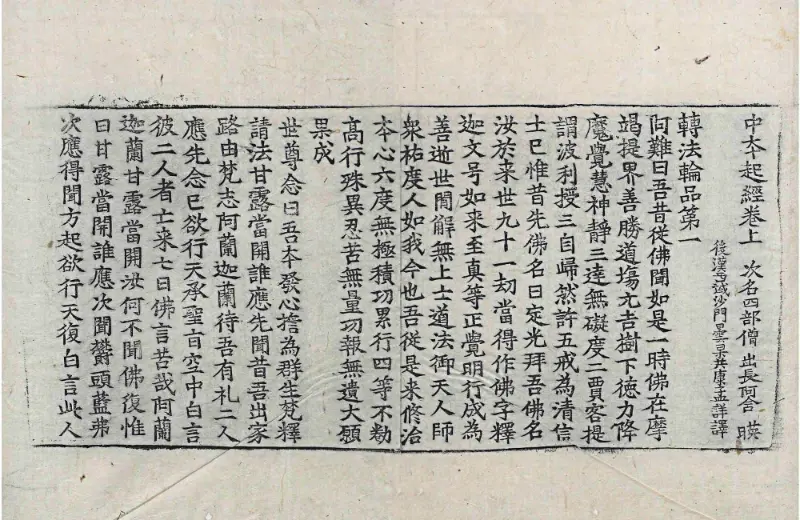 中夲起經卷上 次名四部僧 出長阿含 暎
後漢西域沙門曇果共康孟詳譯
轉法輪品第一
阿難曰吾昔從佛聞如是一時佛在摩
竭提界善勝道場元吉樹下德力降
魔覺慧神靜三達無礙度二賈客提
謂波利授三自歸然許五戒為清信
士已惟昔先佛名曰定光拜吾佛名
汝於来世九十一劫當得作佛字釋
迦文号如来至真等正覺明行成為
善逝世閒解無上士道法御天人師
衆祐度人如我今也吾從是来修治
夲心六度無極積功累行四等不勌
髙行殊異忍苦無量功報無遺大願
果成
世尊念曰吾夲發心擔為群生梵釋
請法甘露當開誰應先聞昔吾出家
路由梵志阿蘭迦蘭待吾有礼二人
應先念已欲行天承聖㫖空中白言
彼二人者亡来七日佛言苦哉阿蘭
迦蘭甘露當開汝何不聞佛復惟
曰甘露當開誰應次聞欝頭藍弗
次應得聞方起欲行天復白言此人